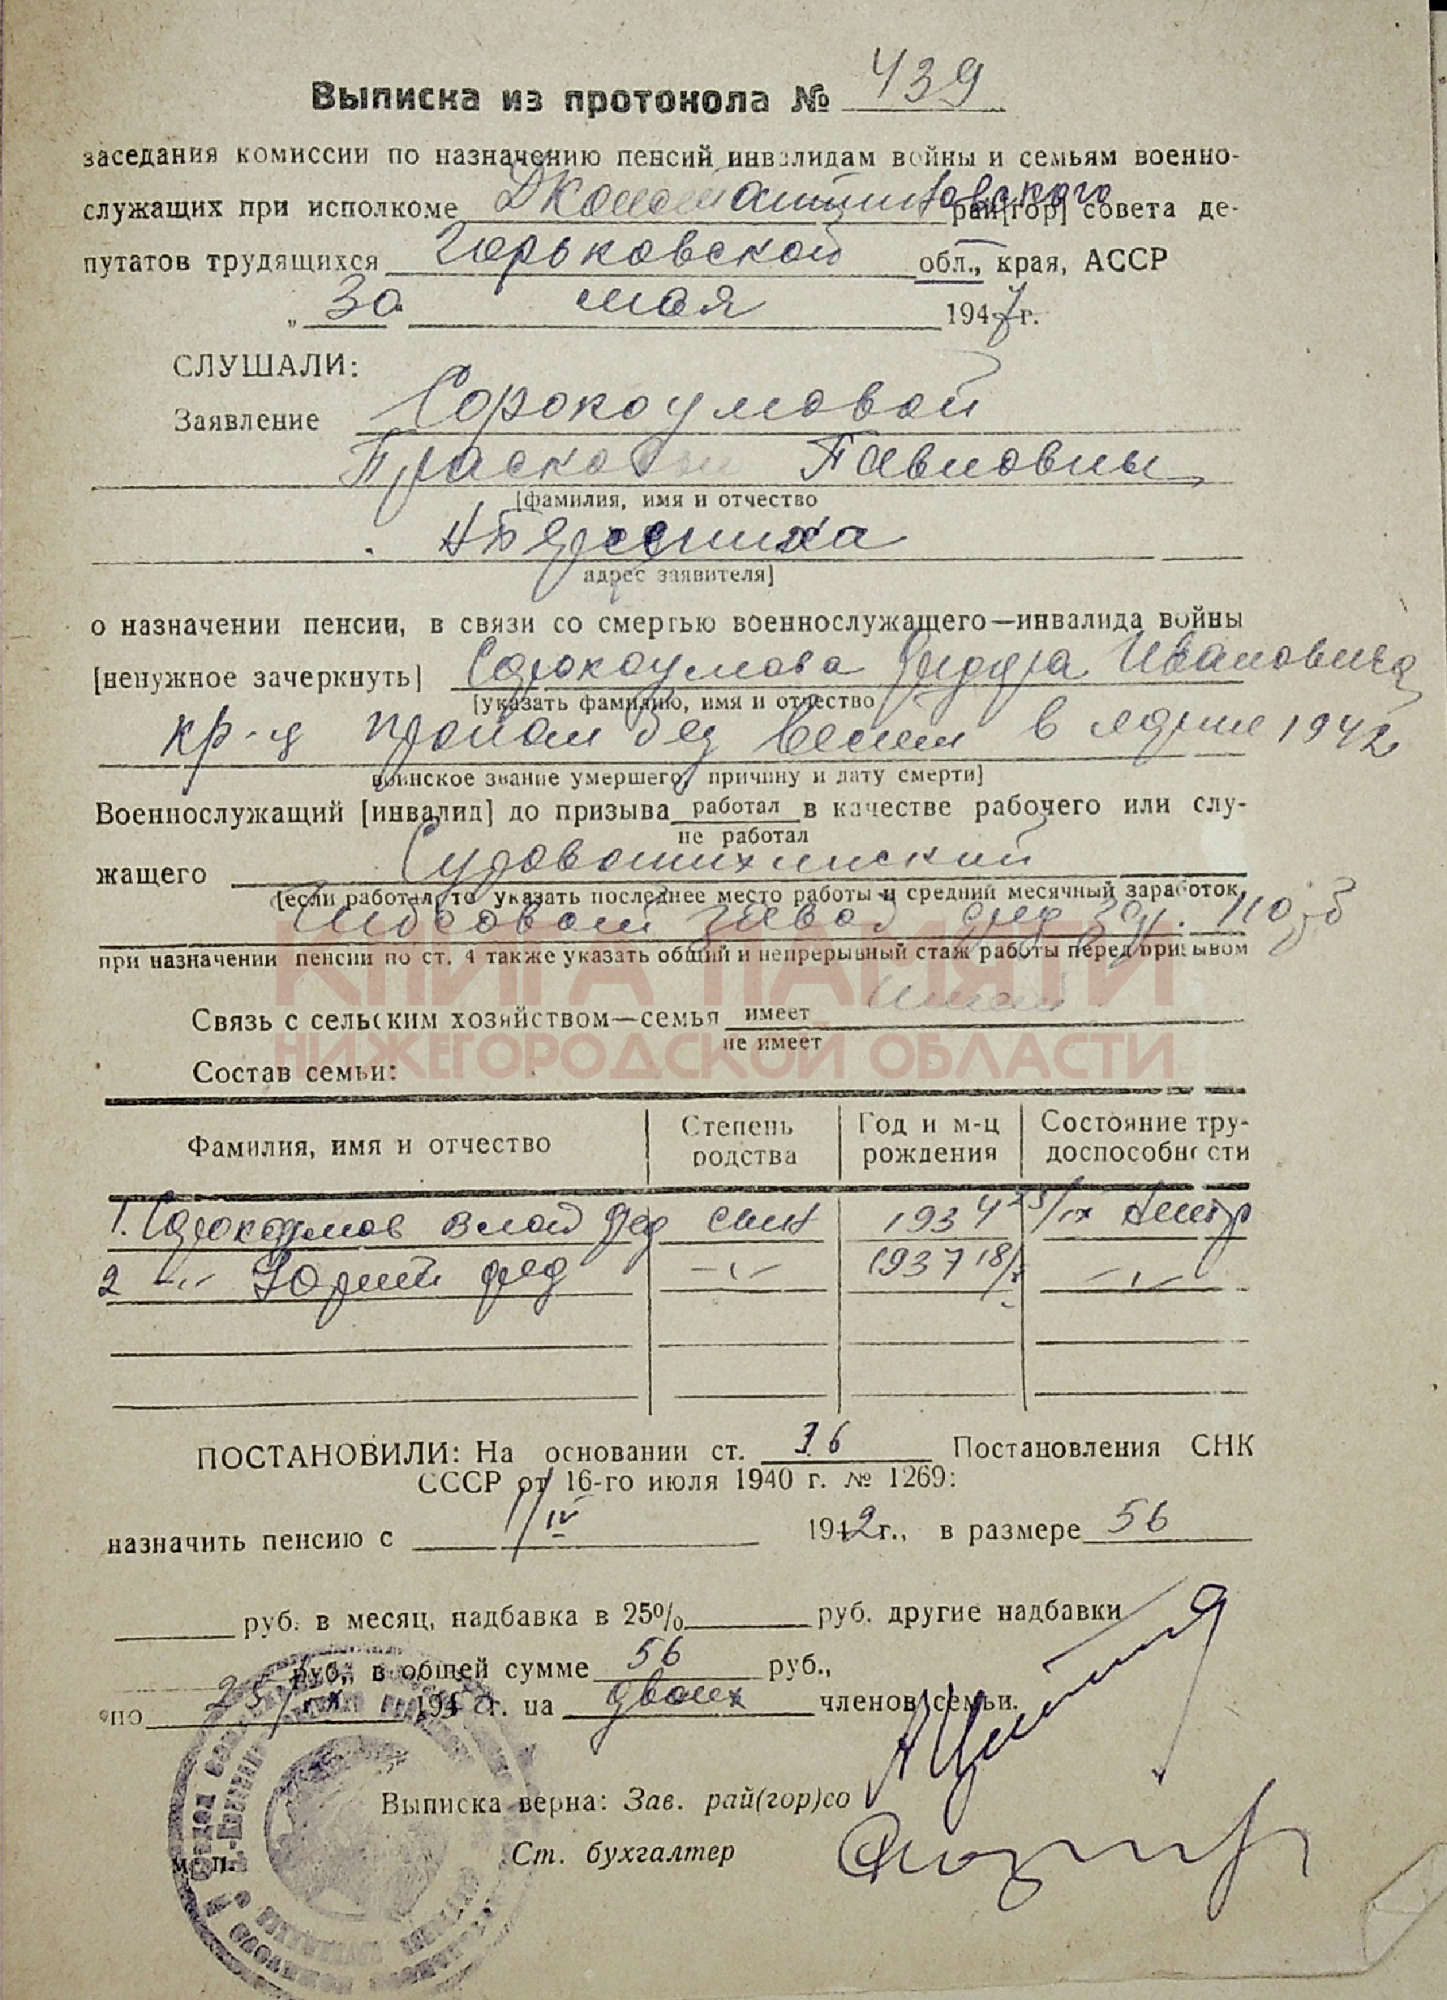 Выписка из протокола № 439
заседания комиссии по назначению пенсий инвалидам войны и семьям военно-
служащих при исполкоме ДКонстантиновского рай[гор] совета де-
путатов трудящихся Горьковской обл., края, АССР
„ 30 мая 1947 г.
СЛУШАЛИ:
Заявление Сорокоумовой
Прасковьи Павловны
[фамилия, имя и отчество
адрес заявителя]
о назначении пенсии, в связи со смертью военнослужащего—инвалида войны
[ненужное зачеркнуть] Сорокоумова Федора Ивановича
[указать фамилию, имя и отчество
кр-ц пропал без вести в апреле 1942
воинское звание умершего, причину и дату смерти]
Военнослужащий [инвалид] до призыва работал в качестве рабочего или слу-
не работал
жащего
[если работал, то указать последнее место работы и средний месячный заработок,
завод 110 руб
при назначении пенсии по ст. 4 также указать общий и непрерывный стаж работы перед призывом
КНИГА ПАМЯТИ
НИЖЕГОРОДСКОЙ ОБЛАСТИ
Связь с сельским хозяйством—семья имеет
не имеет
Состав семьи:
Фамилия, имя и отчество Степень родства Год и м-ц рождения Состояние тру-доспособности
1. Сорокоумов Влад Фед сын 1934 25/IX нетр
2 -"- Юрий Фед -"- 1937 18/ -"-
ПОСТАНОВИЛИ: На основании ст. 16 Постановления СНК
СССР от 16-го июля 1940 г. № 1269:
назначить пенсию с 1/IV 1942 г., в размере 56
руб. в месяц, надбавка в 25% руб. другие надбавки
руб., в общей сумме 56 руб.,
по 25/ 195 г. на двоих членов семьи.
Выписка верна: Зав. рай(гор)со
Ст. бухгалтер
м. п.